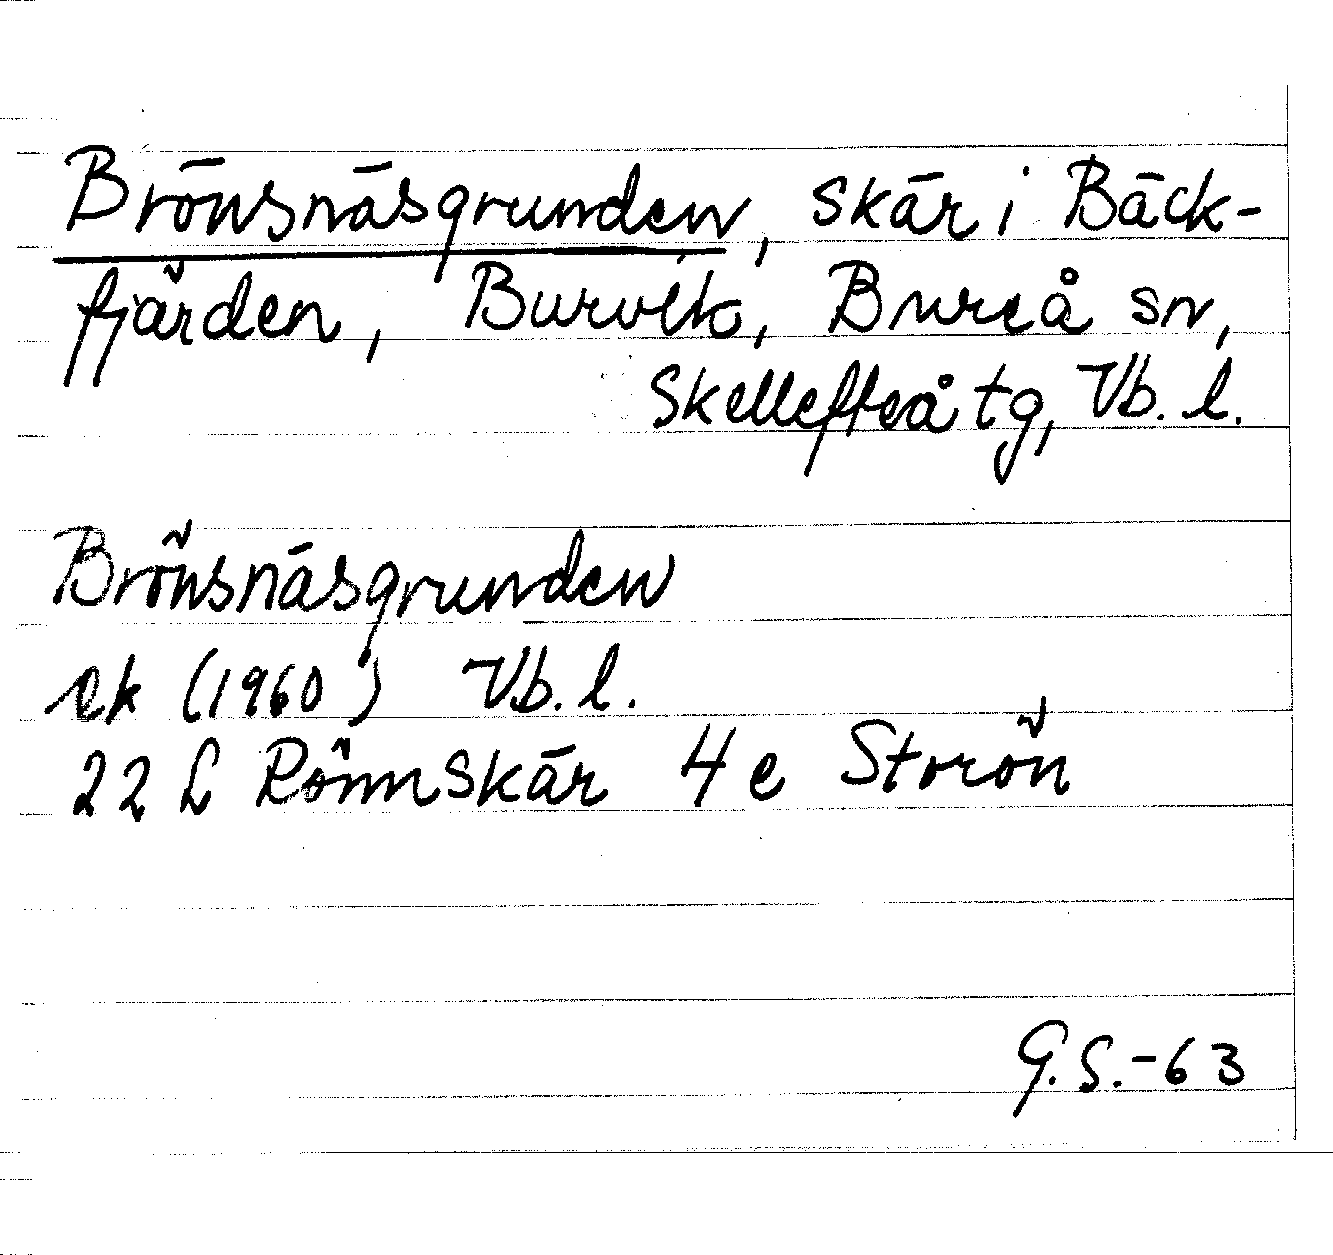 Brönsnäsgrunden, skär i Bäck-
fjärden, Burvik, Bureå sn,
Skellefteå tg, Vb. l.
Brönsnäsgrunden
ek (1960) Vb. l.
22 L Rönnskär 4 e Storön
G.S.-63